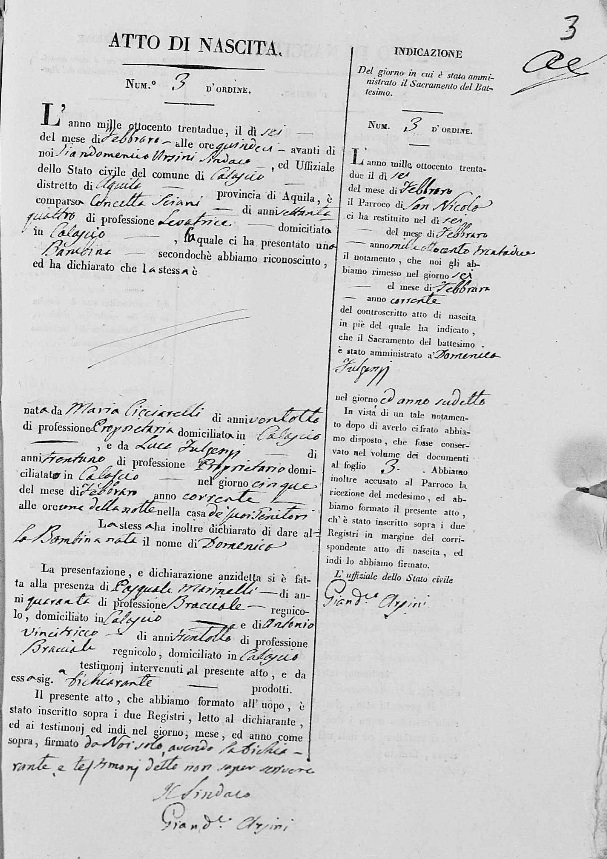 3
ATTO DI NASCITA.
Num.º 3 d'ordine.
L'anno mille ottocento trentadue, il dì sei
del mese di Febbraro alle ore quindici avanti di
noi Giandomenico Sindaco, ed Uffiziale
dello Stato civile del comune di Calascio
distretto di Aquila provincia di Aquila, è
comparsa Concetta Sciani di anni settanta
quattro di professione Levatrice domiciliata
in Calascio, la quale ci ha presentato una
Bambina secondochè abbiamo riconosciuto,
ed ha dichiarato che la stessa è
nata da Maria Cicciarelli di anni ventotto
di professione Proprietaria domiciliata in Calascio
, e da Luca Fulgenzi di
anni trentuno di professione Proprietario domi-
ciliato in Calascio nel giorno cinque
del mese di Febbraro anno corrente
alle ore una della notte nella casa de' suoi Genitori
La stessa ha inoltre dichiarato di dare al-
la Bambina nata il nome di Domenica
La presentazione, e dichiarazione anzidetta si è fat-
ta alla presenza di Pasquale Marinelli di an-
ni quaranta di professione Bracciale regnico-
lo, domiciliato in Calascio e di Antonio
di anni trentotto di professione
Bracciale regnicolo, domiciliato in Calascio
testimonj intervenuti al presente atto, e da
essa sig.ª Dichiarante prodotti.
Il presente atto, che abbiamo formato all'uopo, è
stato inscritto sopra i due Registri, letto al dichiarante,
ed ai testimonj ed indi nel giorno, mese, ed anno come
sopra, firmato da Noi solo, avendo la Dichia-
rante, e testimonj detto non saper scrivere
Il Sindaco
Giand.º
INDICAZIONE
Del giorno in cui è stato ammi-
nistrato il Sacramento del Bat-
tesimo.
Num. 3 d'ordine.
L'anno mille ottocento trenta-
due il dì sei
del mese di Febbraro
il Parroco di San Nicolo
ci ha restituito nel dì sei
del mese di Febbraro
anno mille ottocento trentadue
il notamento, che noi gli ab-
biamo rimesso nel giorno sei
del mese di Febbraro
anno corrente
del controscritto atto di nascita
in piè del quale ha indicato,
che il Sacramento del battesimo
è stato amministrato a Domenica
Fulgenzi
nel giorno ed anno sudetto
In vista di un tale notamento
dopo di averlo cifrato abbia-
mo disposto, che fosse conser-
vato nel volume dei documenti
al foglio 3. Abbiamo
inoltre accusato al Parroco la
ricezione del medesimo, ed ab-
biamo formato il presente atto,
ch'è stato inscritto sopra i due
Registri in margine del corri-
spondente atto di nascita, ed
indi lo abbiamo firmato.
L'uffiziale dello Stato civile
Giand.º